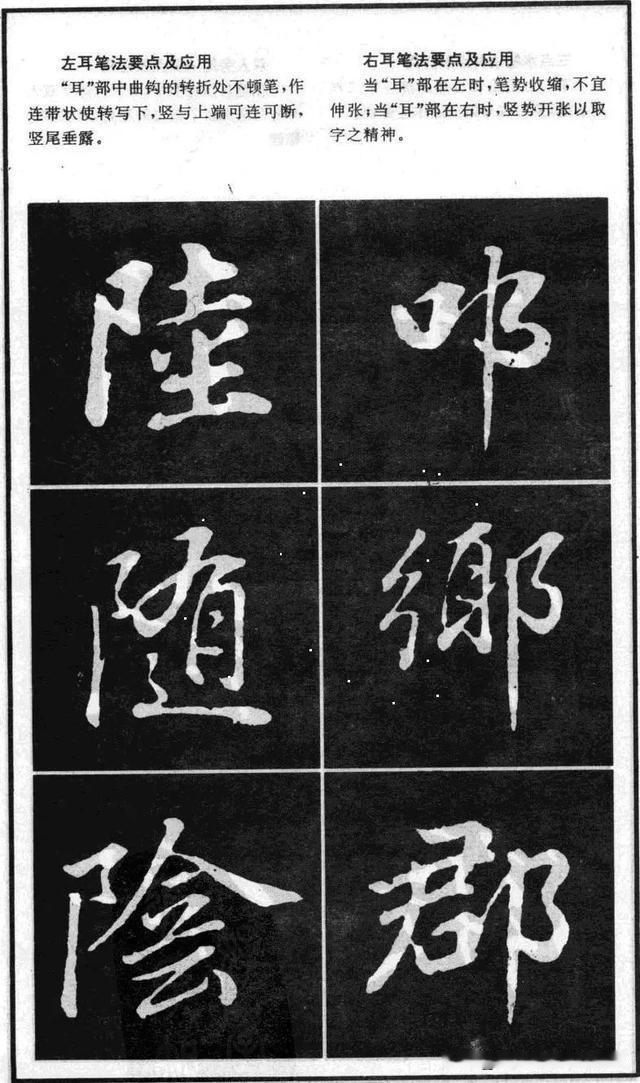 左耳笔法要点及应用
“耳”部中曲钩的转折处不顿笔，作
连带状使转写下，竖与上端可连可断，
竖尾垂露。
右耳笔法要点及应用
当“耳”部在左时，笔势收缩，不宜
伸张；当“耳”部在右时，竖势开张以取
字之精神。
陸
随 鄉
陰 郡